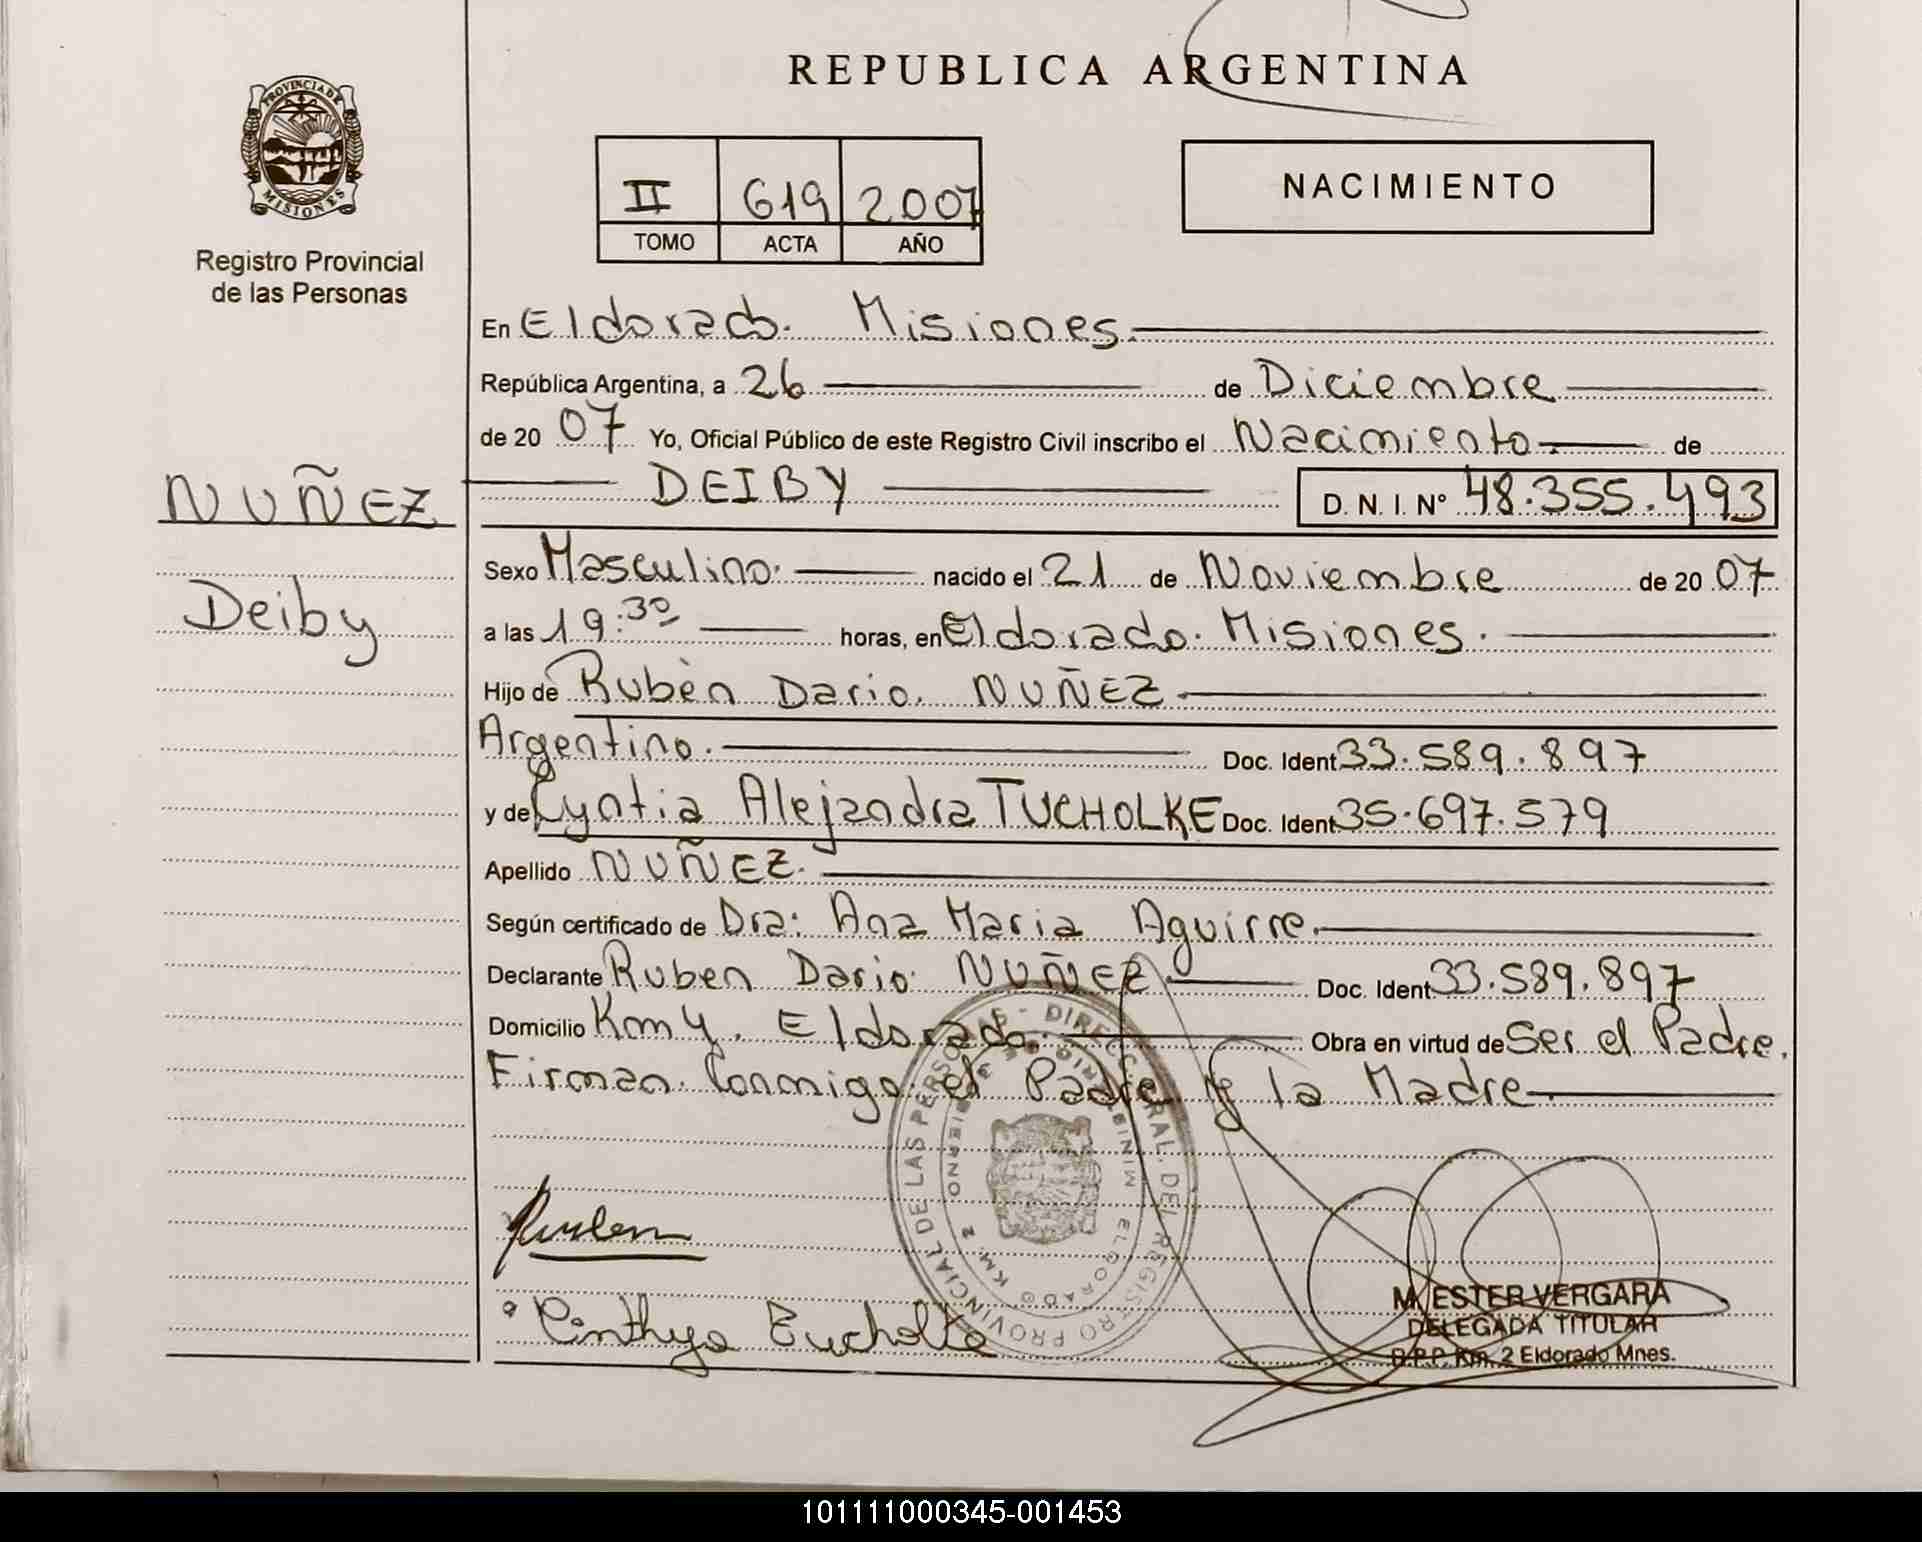 REPUBLICA ARGENTINA
PROVINCIA DE
MISIONES
Registro Provincial
de las Personas
II 619 2007
TOMO ACTA AÑO
NACIMIENTO
En Eldorado. Misiones.
República Argentina, a 26 de Diciembre
de 20 07 Yo, Oficial Público de este Registro Civil inscribo el Nacimiento de
NUÑEZ
DEIBY D. N. I. Nº 48.355.493
Deiby
Sexo Masculino. nacido el 21 de Noviembre de 20 07
a las 19:30 horas, en Eldorado. Misiones.
Hijo de Rubèn Dario. NUÑEZ
Argentino. Doc. Ident 33.589.897
y de Cyntia Alejandra TUCHOLKE Doc. Ident 35.697.579
Apellido NUÑEZ.
Según certificado de Dra: Ana Maria Aguirre.
Declarante Ruben Dario NUÑEZ Doc. Ident 33.589.897
Domicilio Km 4. Eldorado. Obra en virtud de Ser el Padre.
Firman Conmigo el Padre y la Madre
DIRECC. GRAL. DEL REGISTRO PROVINCIAL DE LAS PERSONAS
ELDORADO KM. 2
Ruben
Cinthya Tucholke
M. ESTER VERGARA
DELEGADA TITULAR
R.P.P. Km. 2 Eldorado Mnes.
101111000345-001453